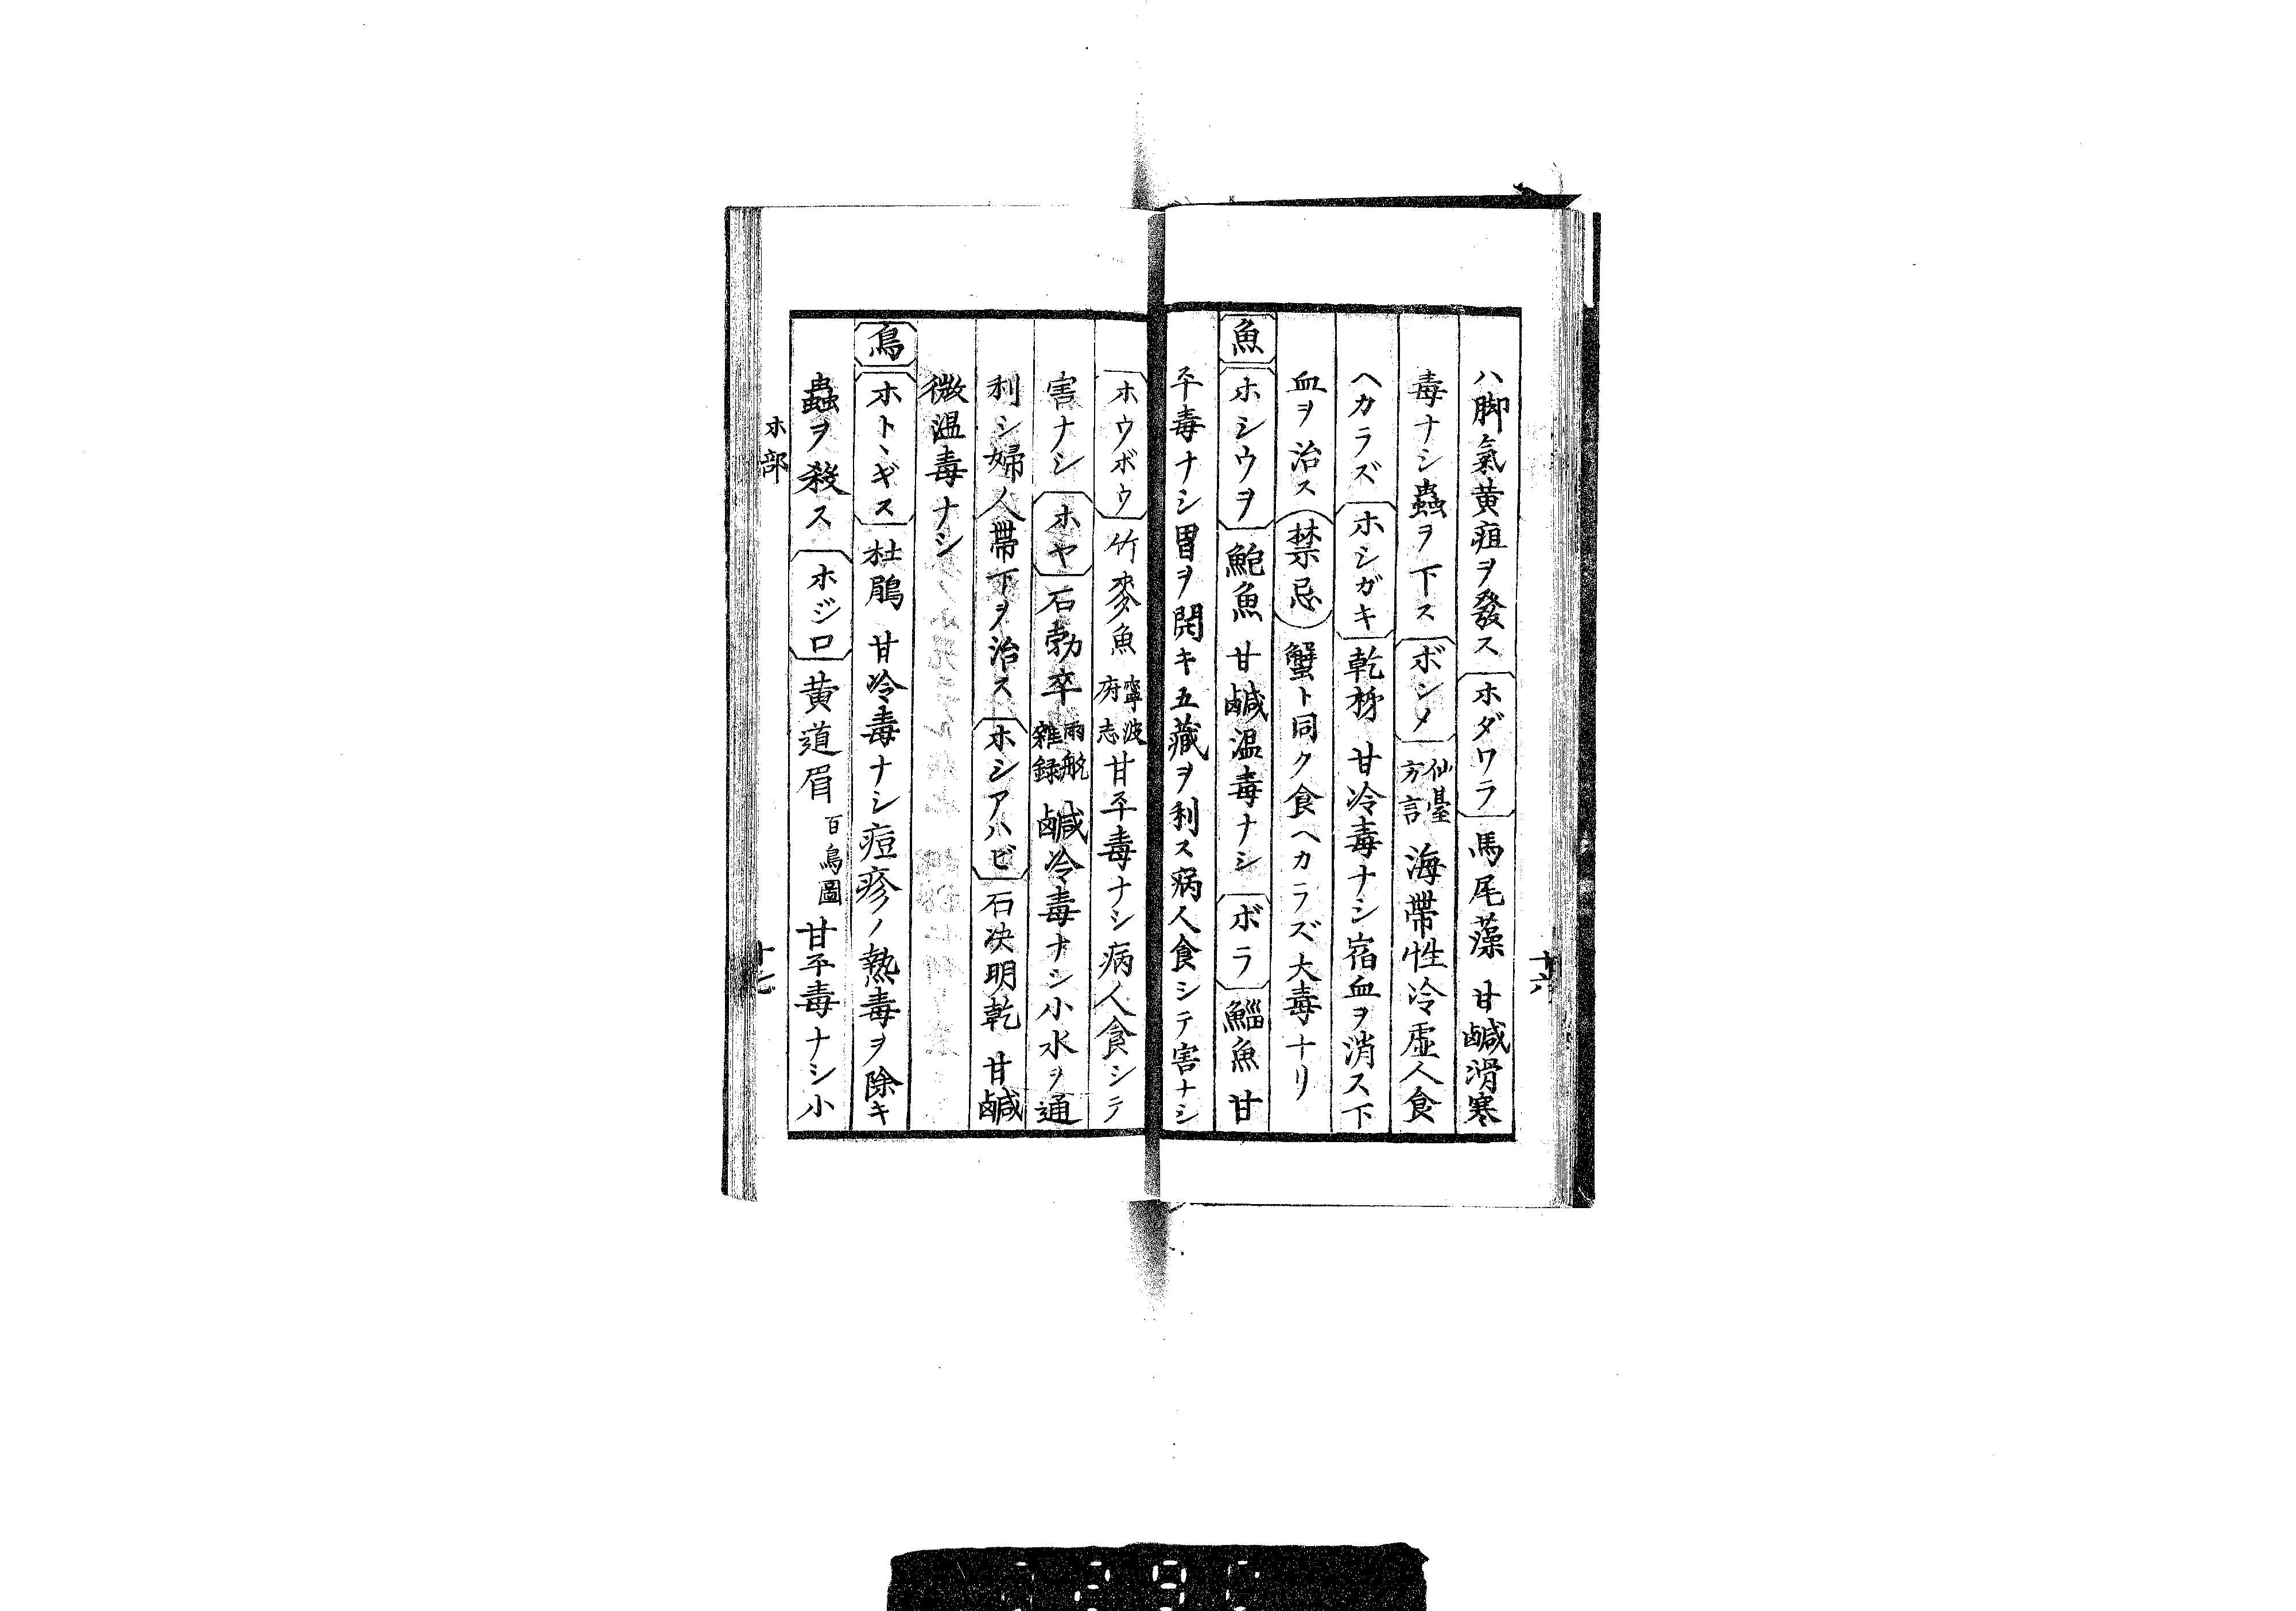 ハ脚氣黄疸ヲ發ス ホダワラ 馬尾藻 甘鹹滑寒
毒ナシ蟲ヲ下ス ボンメ 仙臺方言 海帶性冷虛人食
ヘカラズ ホシガキ 乾柹 甘冷毒ナシ宿血ヲ消ス下
血ヲ治ス 禁忌 蟹ト同ク食ヘカラズ大毒ナリ
魚 ホシウヲ 鮑魚 甘鹹温毒ナシ ボラ 鯔魚 甘
平毒ナシ胃ヲ開キ五藏ヲ利ス病人食シテ害ナシ
十六
ホウボウ 竹麥魚 寧波府志 甘平毒ナシ病人食シテ
害ナシ ホヤ 石勃卒 雨航雜録 鹹冷毒ナシ小水ヲ通
利シ婦人帶下ヲ治ス ホシアハビ 石决明乾 甘鹹
微温毒ナシ
鳥 ホトヽギス 杜鵑 甘冷毒ナシ痘疹ノ熱毒ヲ除キ
蟲ヲ殺ス ホジロ 黄道眉 百鳥圖 甘平毒ナシ小
ホ部
十七